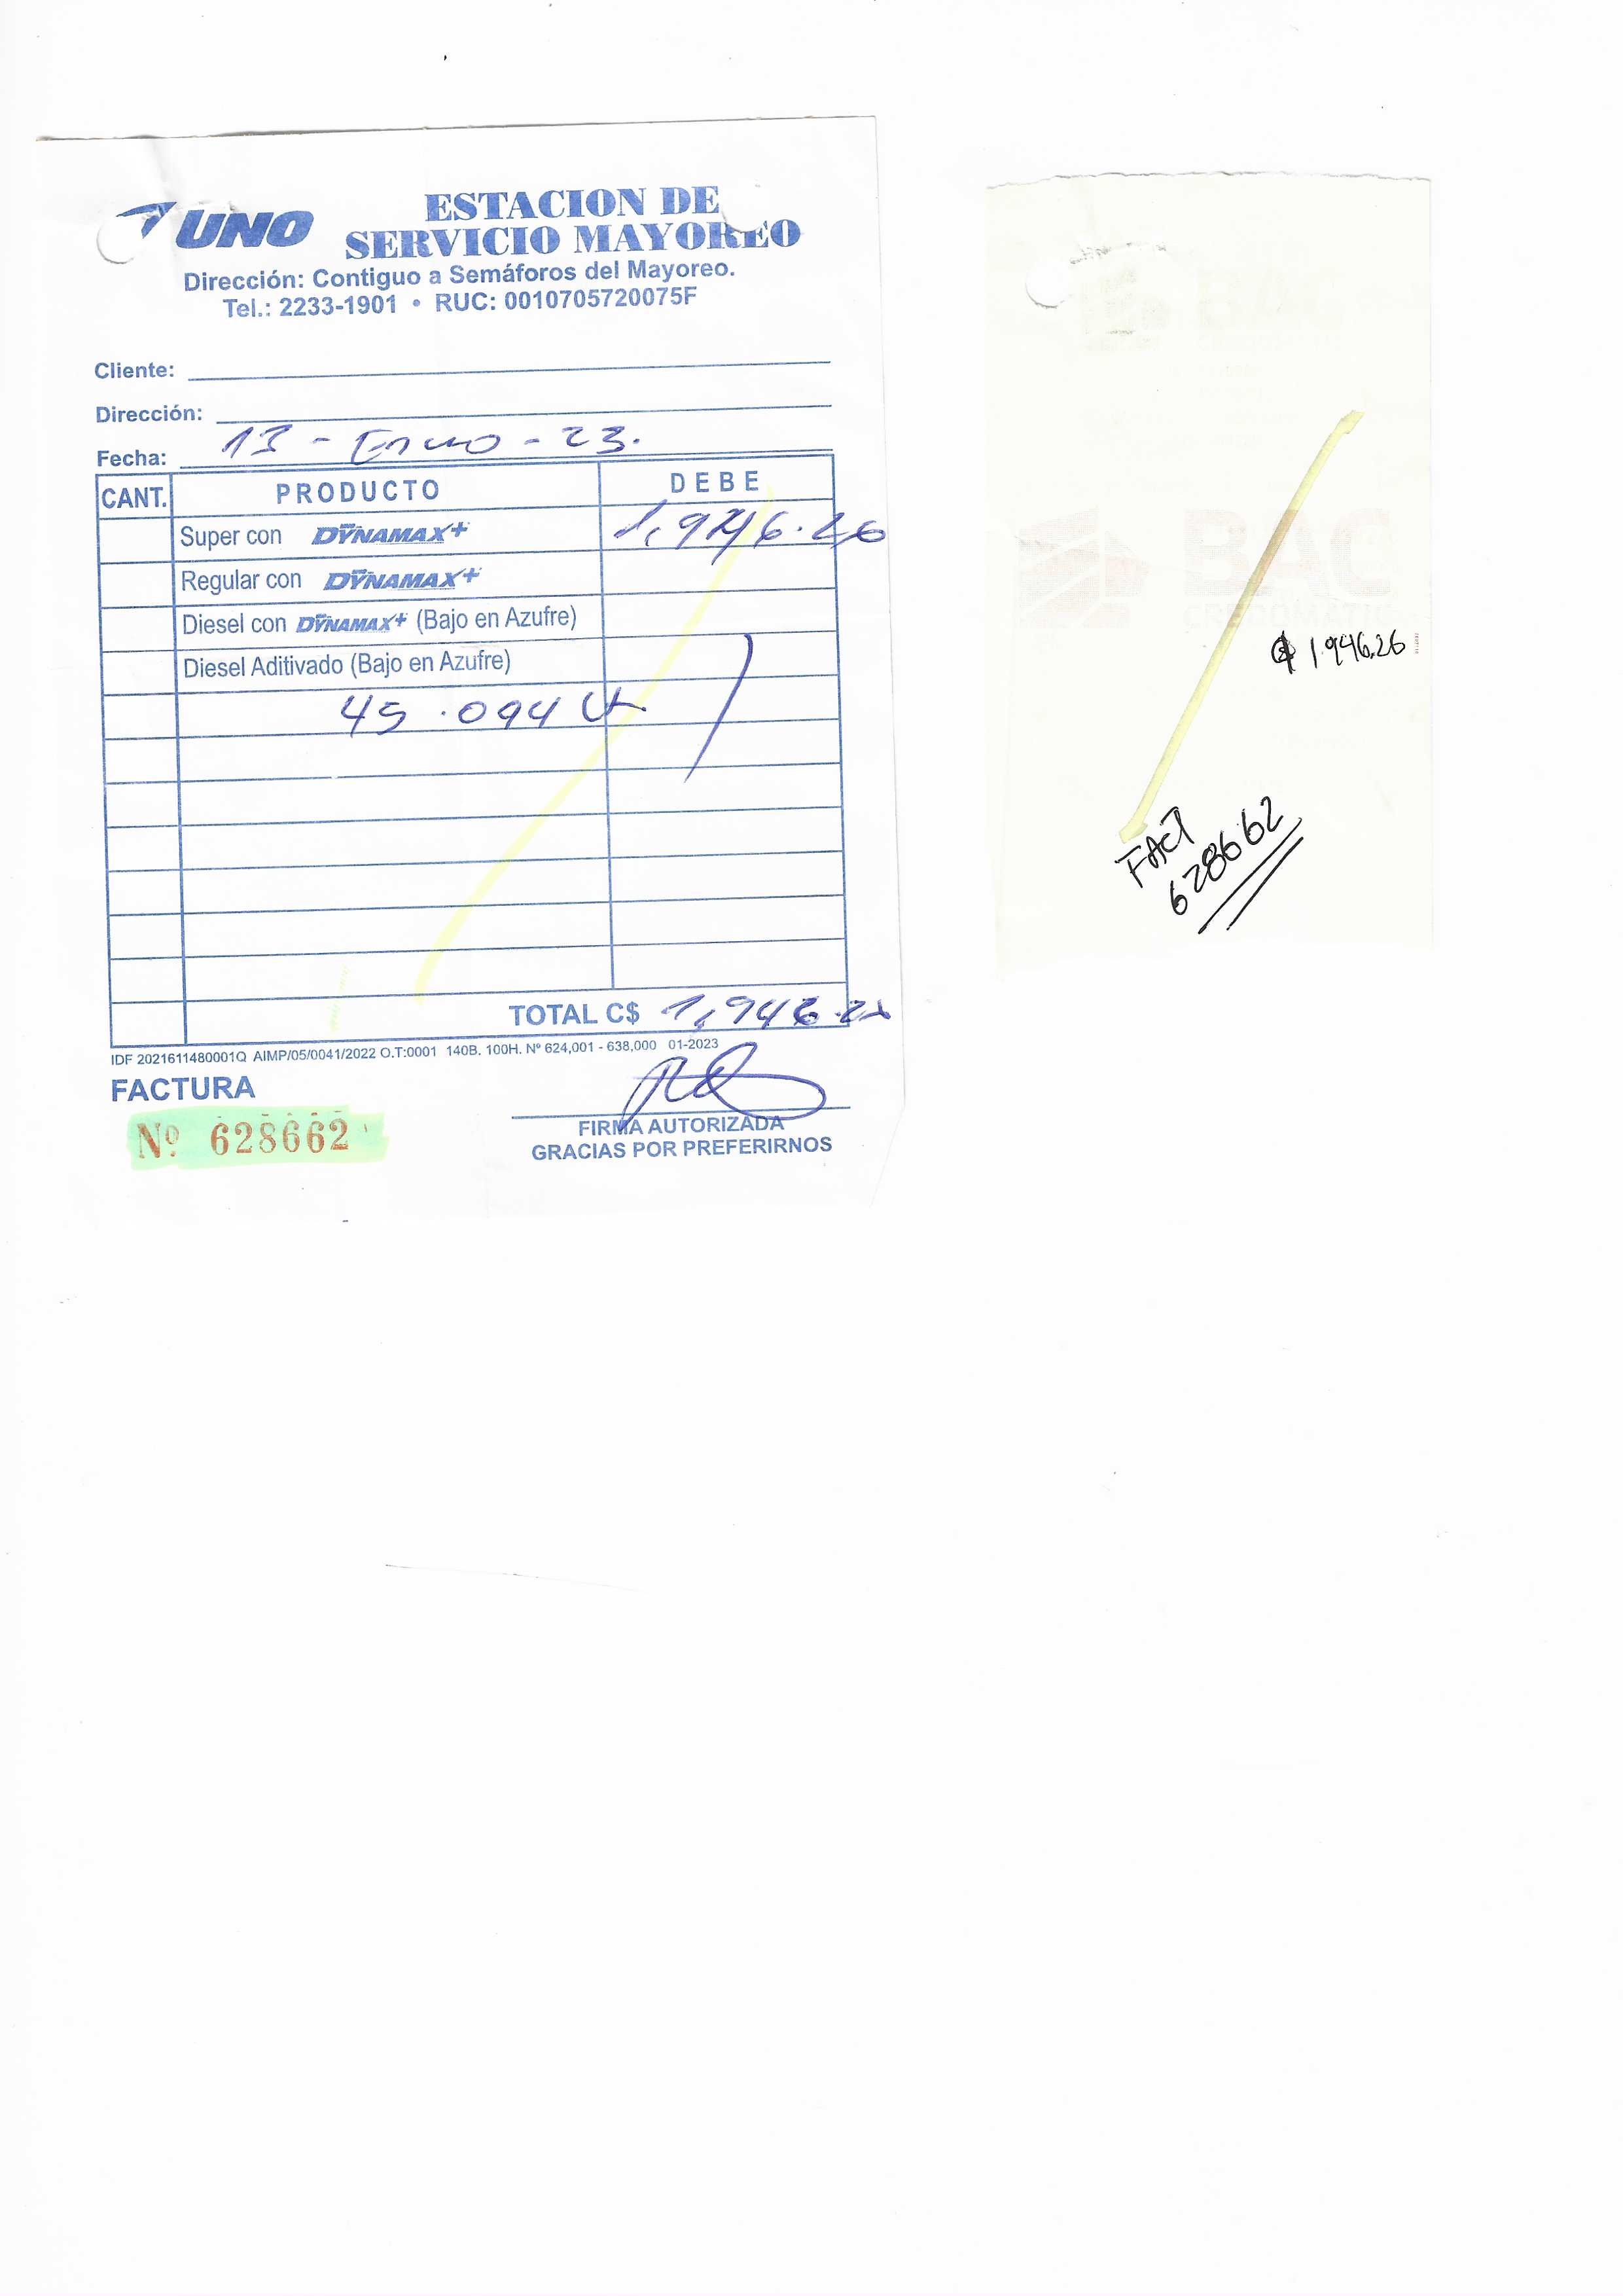 UNO
ESTACION DE
SERVICIO MAYOREO
Dirección: Contiguo a Semáforos del Mayoreo.
Tel.: 2233-1901 • RUC: 0010705720075F
Cliente:
Dirección:
Fecha: 13 - Enero - 23.
CANT. PRODUCTO DEBE
Super con DYNAMAX+ 1,946.26
Regular con DYNAMAX+
Diesel con DYNAMAX+ (Bajo en Azufre)
Diesel Aditivado (Bajo en Azufre)
45.094
TOTAL C$ 1,946.26
IDF 2021611480001Q AIMP/05/0041/2022 O.T:0001 140B. 100H. Nº 624,001 - 638,000 01-2023
FACTURA
Nº 628662
FIRMA AUTORIZADA
GRACIAS POR PREFERIRNOS
BAC
CREDOMATIC
1.946.26
FACT
628662